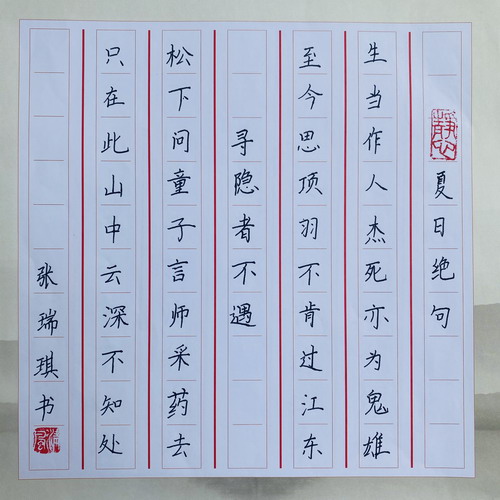 静心
夏日绝句
生当作人杰死亦为鬼雄
至今思项羽不肯过江东
寻隐者不遇
松下问童子言师采药去
只在此山中云深不知处
张瑞琪书